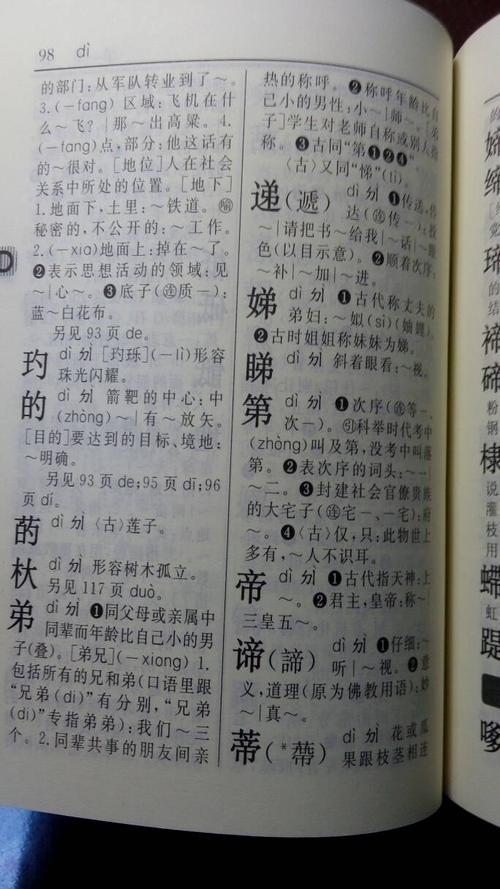 98 dì
的部门:从军队转业到了~。
3.(-fang)区域:飞机在什
么~飞?|那~出高粱。4.
(-fang)点,部分:他这话有
的~很对。[地位]人在社会
关系中所处的位置。[地下]
1.地面下,土里:~铁道。㊉
秘密的,不公开的:~工作。
2.(-xia)地面上:掉在~了。
❷表示思想活动的领域:见
~|心~。❸底子(㊣质-):
蓝~白花布。
另见93页de。
玓 dì ㄉㄧˋ [玓瓅](-lì)形容
珠光闪耀。
的 dì ㄉㄧˋ 箭靶的中心:中
(zhòng)~|有~放矢。
[目的]要达到的目标、境地:
~明确。
另见93页de;95页dī;96
页dí。
菂 dì ㄉㄧˋ〈古〉莲子。
杕 dì ㄉㄧˋ 形容树木孤立。
另见117页duò。
弟 dì ㄉㄧˋ ❶同父母或亲属中
同辈而年龄比自己小的男
子(叠)。[弟兄](-xiong)1.
包括所有的兄和弟(口语里跟
“兄弟(di)”有分别,“兄弟
(di)”专指弟弟):我们~三
个。2.同辈共事的朋友间亲
热的称呼。❷称呼年龄比自
己小的男性:小~|师~。[弟
子]学生对老师自称或别人指
称。❸古同“第❶❷❹”。
〈古〉又同“悌”(tì)。
递(遞) dì ㄉㄧˋ ❶传送,传
达(㊣传-):投~
|请把书~给我|~话|~眼
色(以目示意)。❷顺着次序:
~补|~加|~进。
娣 dì ㄉㄧˋ ❶古代称丈夫的
弟妇:~姒(sì)(妯娌)。
❷古时姐姐称妹妹为娣。
睇 dì ㄉㄧˋ 斜着眼看:~视。
第 dì ㄉㄧˋ ❶次序(㊣等-、
次-)。㊕科举时代考中
(zhòng)叫及第,没考中叫落
第。❷表次序的词头:~一|
~二。❸封建社会官僚贵族
的大宅子(㊣宅-、-宅):府
~。❹〈古〉仅,只:此物世上
多有,~人不识耳。
帝 dì ㄉㄧˋ ❶古代指天神:上
~。❷君主,皇帝:称~|
三皇五~。
谛(諦) dì ㄉㄧˋ ❶仔细:~
听|~视。❷意
义,道理(原为佛教用语):妙
~|真~。
蒂(*蔕) dì ㄉㄧˋ 花或瓜
果跟枝茎相连